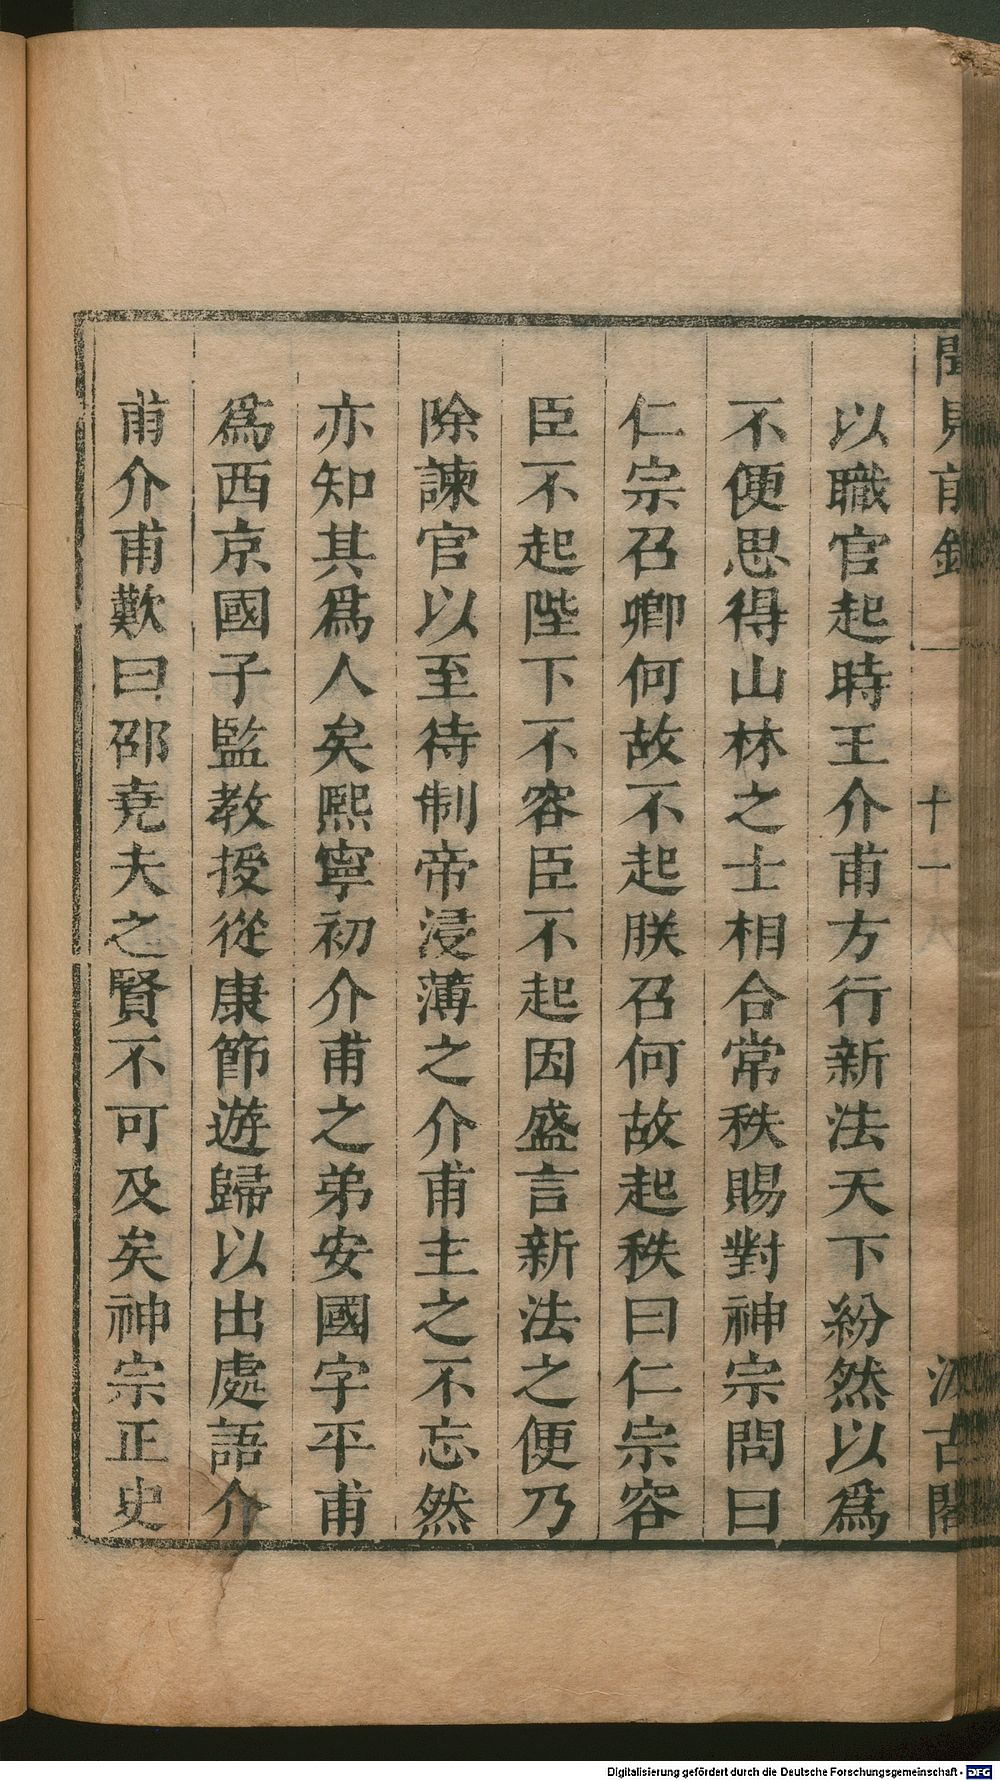 聞見前錄
十一
汲古閣
以職官起時王介甫方行新法天下紛然以爲
不便思得山林之士相合常秩賜對神宗問曰
仁宗召卿何故不起朕召何故起秩曰仁宗容
臣不起陛下不容臣不起因盛言新法之便乃
除諫官以至待制帝浸薄之介甫主之不忘然
亦知其爲人矣熙寧初介甫之弟安國字平甫
爲西京國子監教授從康節遊歸以出處語介
甫介甫歎曰邵堯夫之賢不可及矣神宗正史
Digitalisierung gefördert durch die Deutsche Forschungsgemeinschaft - DFG